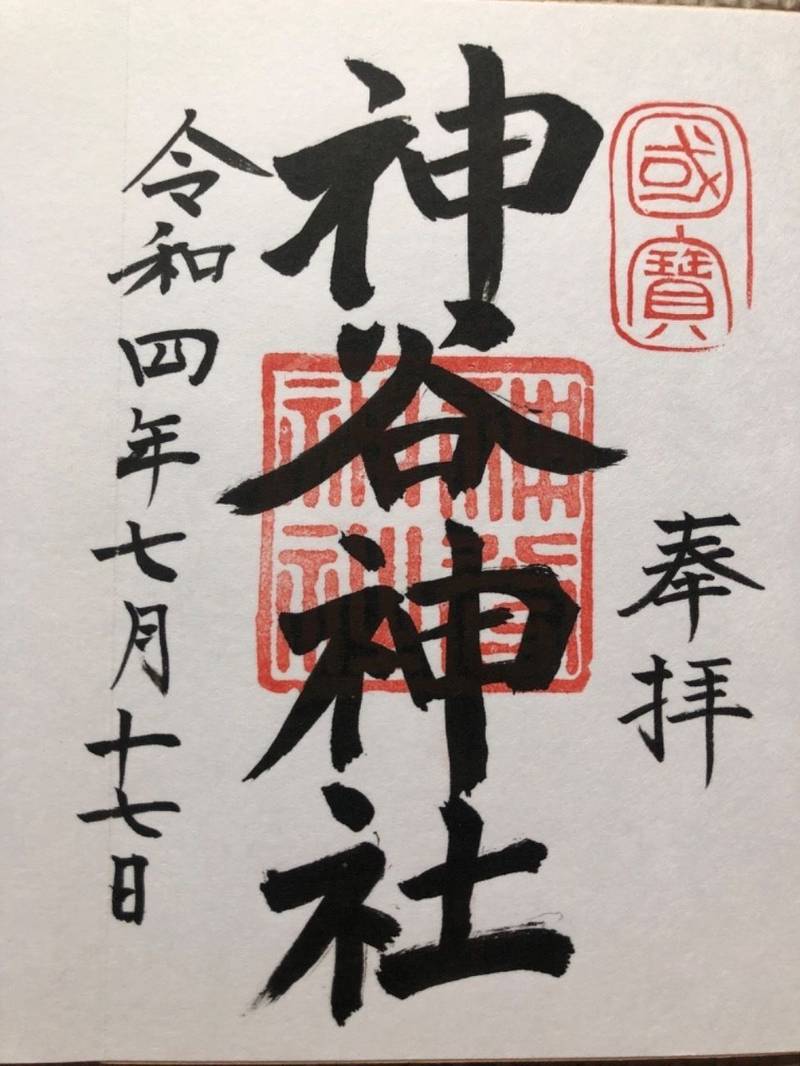 國寶
奉拝
神谷神社
神谷神社
令和四年七月十七日